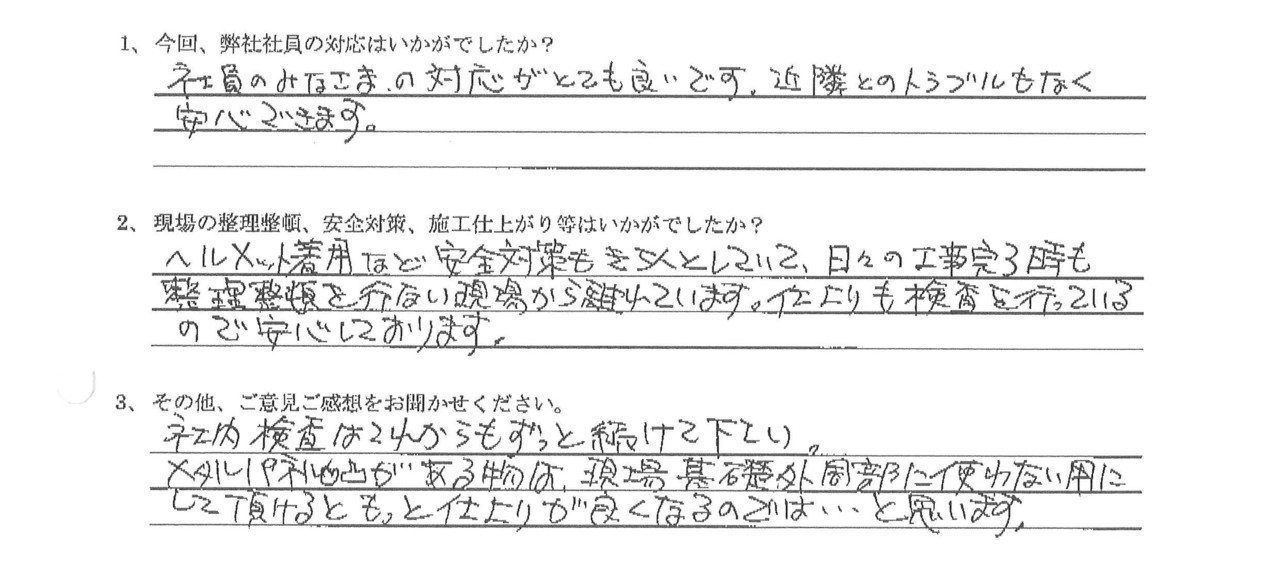 1、今回、弊社社員の対応はいかがでしたか？
社員のみなさまの対応がとても良いです。近隣とのトラブルもなく
安心できます。
2、現場の整理整頓、安全対策、施工仕上がり等はいかがでしたか？
ヘルメット着用など安全対策もきちんとしていて、日々の工事完了時も
整理整頓を行ない現場から離れています。仕上りも検査を行っている
ので安心しております。
3、その他、ご意見ご感想をお聞かせください。
社内検査はこれからもずっと続けて下さい。
メタルパネル凸凹がある物は、現場基礎外周部に使わない用に
して頂けるともっと仕上りが良くなるのでは…と思います。